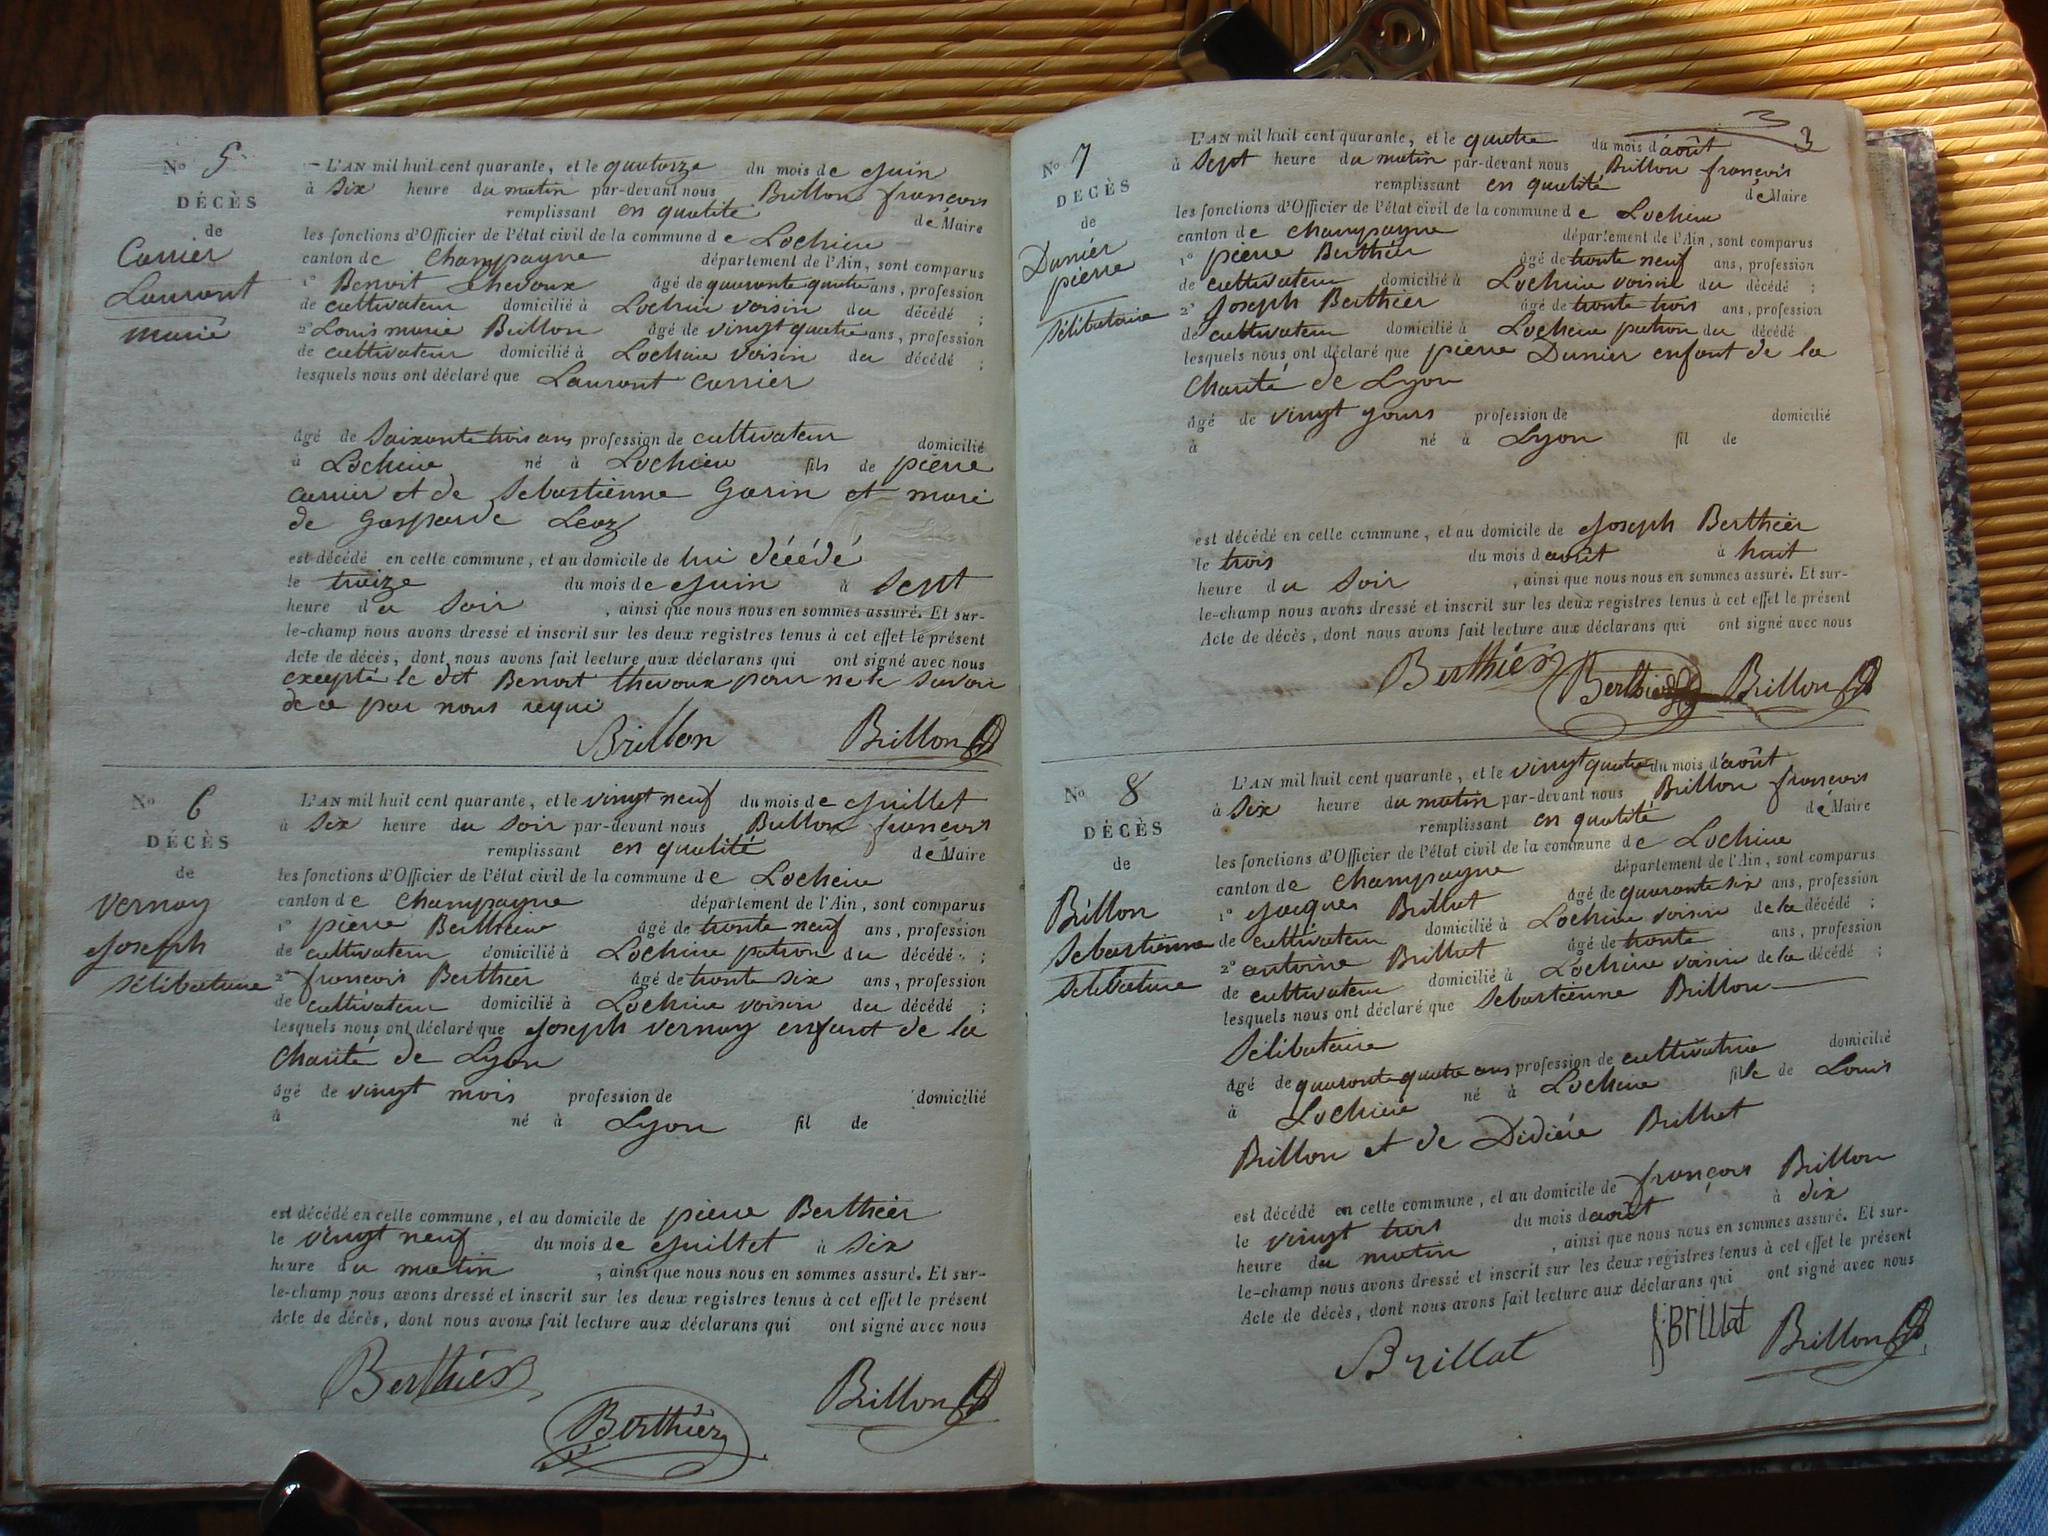 No 5
DÉCÈS
de
Carrier
Laurent
marié
L'AN mil huit cent quarante, et le quatorze du mois de Juin
à six heure du matin par-devant nous Brillon françois
remplissant en qualité de Maire
les fonctions d'Officier de l'état civil de la commune de Lochieu
canton de Champagne département de l'Ain, sont comparus
1º Benoit Thevoux âgé de quarante quatre ans, profession
de cultivateur domicilié à Lochieu voisin du décédé ;
2º Louis marie Brillon âgé de vingt quatre ans, profession
de cultivateur domicilié à Lochieu voisin du décédé ;
lesquels nous ont déclaré que Laurent Carrier
âgé de Soixante trois ans profession de cultivateur domicilié
à Lochieu né à Lochieu fils de pierre
Carrier et de Sebastienne Garin et mari
de Gasparde Leoz
est décédé en cette commune, et au domicile de lui décédé
le treize du mois de Juin à Sept
heure du Soir , ainsi que nous nous en sommes assuré. Et sur-
le-champ nous avons dressé et inscrit sur les deux registres tenus à cet effet le présent
Acte de décès, dont nous avons fait lecture aux déclarans qui ont signé avec nous
excepté le dit Benoit Thevoux pour ne le Savoir
de ce par nous requi
Brillon Brillon
No 6
DÉCÈS
de
Vernay
Joseph
Sélibataire
L'AN mil huit cent quarante, et le vingt neuf du mois de Juillet
à Six heure du Soir par-devant nous Brillon françois
remplissant en qualité de Maire
les fonctions d'Officier de l'état civil de la commune de Lochieu
canton de Champagne département de l'Ain, sont comparus
1º pierre Berthier âgé de trente neuf ans, profession
de cultivateur domicilié à Lochieu patron du décédé ;
2º françois Berthier âgé de trente six ans, profession
de cultivateur domicilié à Lochieu voisin du décédé ;
lesquels nous ont déclaré que Joseph Vernay enfant de la
Charité de Lyon
âgé de vingt mois profession de domicilié
à né à Lyon fil de
est décédé en cette commune, et au domicile de pierre Berthier
le vingt neuf du mois de Juillet à Six
heure du matin , ainsi que nous nous en sommes assuré. Et sur-
le-champ nous avons dressé et inscrit sur les deux registres tenus à cet effet le présent
Acte de décès, dont nous avons fait lecture aux déclarans qui ont signé avec nous
Berthier
Berthier
Brillon
3
3
No 7
DÉCÈS
de
Dunier
pierre
Sélibataire
L'AN mil huit cent quarante, et le quatre du mois d'août
à Sept heure du matin par-devant nous Brillon françois
remplissant en qualité de Maire
les fonctions d'Officier de l'état civil de la commune de Lochieu
canton de Champagne département de l'Ain, sont comparus
1º pierre Berthier âgé de trente neuf ans, profession
de cultivateur domicilié à Lochieu voisin du décédé ;
2º Joseph Berthier âgé de trente trois ans, profession
de cultivateur domicilié à Lochieu patron du décédé
lesquels nous ont déclaré que pierre Dunier enfant de la
Charité de Lyon
âgé de vingt jours profession de domicilié
à né à Lyon fil de
est décédé en cette commune, et au domicile de Joseph Berthier
le trois du mois d'août à huit
heure du Soir , ainsi que nous nous en sommes assuré. Et sur-
le-champ nous avons dressé et inscrit sur les deux registres tenus à cet effet le présent
Acte de décès, dont nous avons fait lecture aux déclarans qui ont signé avec nous
Berthier Berthier Brillon
No 8
DÉCÈS
de
Brillon
Sebastienne
Selibataire
L'AN mil huit cent quarante, et le vingt quatre du mois d'août
à Six heure du matin par-devant nous Brillon françois
remplissant en qualité de Maire
les fonctions d'Officier de l'état civil de la commune de Lochieu
canton de Champagne département de l'Ain, sont comparus
1º Jacques Brillat âgé de quarante six ans, profession
de cultivateur domicilié à Lochieu voisin de la décédé ;
2º antoine Brillat âgé de trente ans, profession
de cultivateur domicilié à Lochieu voisin de la décédé ;
lesquels nous ont déclaré que Sebastienne Brillon
Sélibataire
âgé de quarante quatre ans profession de cultivatrice domicilié
à Lochieu né à Lochieu fille de Louis
Brillon et de Didière Brillat
est décédé en cette commune, et au domicile de françois Brillon
le vingt trois du mois d'août à dix
heure du matin , ainsi que nous nous en sommes assuré. Et sur-
le-champ nous avons dressé et inscrit sur les deux registres tenus à cet effet le présent
Acte de décès, dont nous avons fait lecture aux déclarans qui ont signé avec nous
Brillat J. Brillat Brillon